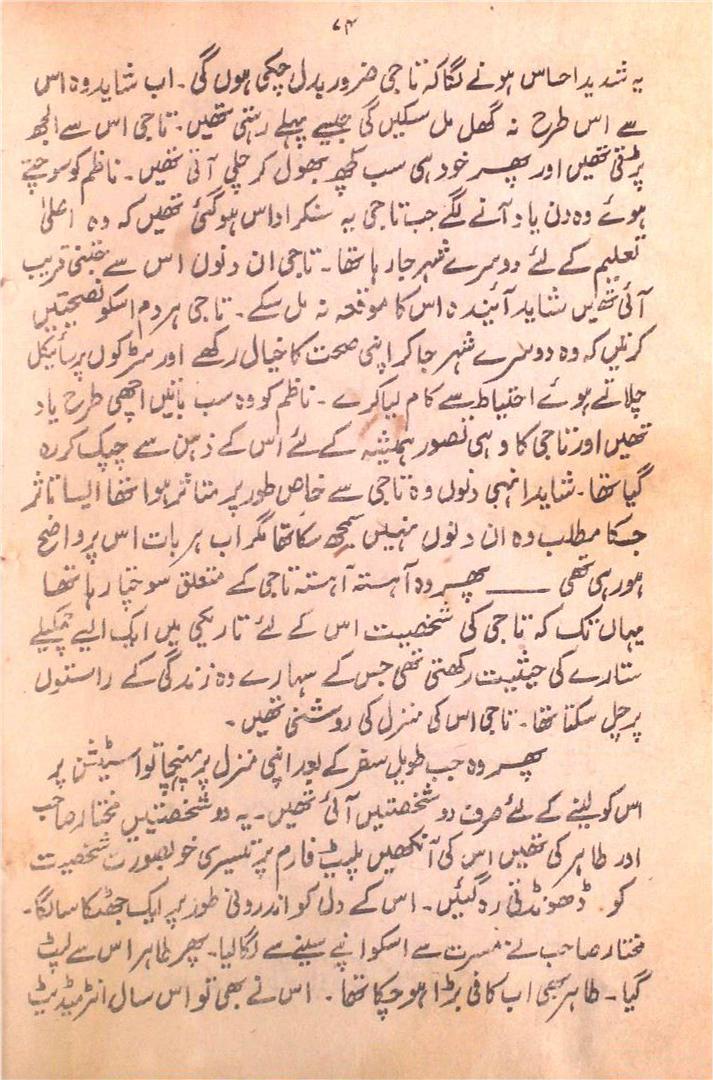 ۷۴
یہ شدید احساس ہونے لگا کہ تاجی ضرور بدل چکی ہوں گی۔ اب شاید وہ اس
سے اس طرح نہ گھل مل سکیں گی جیسے پہلے رہتی تھیں۔ تاجی اس سے الجھ
پڑتی تھیں اور پھر خود ہی سب کچھ بھول کر چلی آتی تھیں۔ ناظم کو سوچتے
ہوئے وہ دن یاد آنے لگے جب تاجی یہ سنکر اداس ہو گئی تھیں کہ وہ اعلیٰ
تعلیم کے لئے دوسرے شہر جا رہا تھا۔ تاجی ان دنوں اس سے جتنی قریب
آئی تھیں شاید آئیندہ اس کا موقعہ نہ مل سکے۔ تاجی ہر دم اسکو نصیحتیں
کرتیں کہ وہ دوسرے شہر جا کر اپنی صحت کا خیال رکھے اور سڑکوں پر سائیکل
چلاتے ہوئے احتیاط سے کام لیا کرے۔ ناظم کو وہ سب باتیں اچھی طرح یاد
تھیں اور تاجی کا وہی تصور ہمیشہ کے لئے اس کے ذہن سے چپک کر رہ
گیا تھا۔ شاید انہی دنوں وہ تاجی سے خاص طور پر متاثر ہوا تھا ایسا تاثر
جسکا مطلب وہ ان دنوں نہیں سمجھ سکا تھا مگر اب ہر بات اس پر واضح
ہو رہی تھی ـــــــ پھر وہ آہستہ آہستہ تاجی کے متعلق سوچتا رہا تھا
یہاں تک کہ تاجی کی شخصیت اس کے لئے تاریکی میں ایک ایسے چمکیلے
ستارے کی حیثیت رکھتی تھی جس کے سہارے وہ زندگی کے راستوں
پر چل سکتا تھا۔ تاجی اس کی منزل کی روشنی تھیں۔
پھر وہ جب طویل سفر کے بعد اپنی منزل پر پہنچا تو اسٹیشن پر
اس کو لینے کے لئے صرف دو شخصتیں آئی تھیں۔ یہ دو شخصتیں مختار صاحب
اور طاہر کی تھیں اس کی آنکھیں پلیٹ فارم پر تیسری خوبصورت شخصیت
کو ڈھونڈتی رہ گئیں۔ اس کے دل کو اندرونی طور پر ایک جھٹکا سا لگا۔
مختار صاحب نے مسرت سے اسکو اپنے سینے سے لگا لیا۔ پھر طاہر اس سے لپٹ
گیا۔ طاہر بھی اب کافی بڑا ہو چکا تھا۔ اس نے بھی تو اس سال انٹرمیڈیٹ